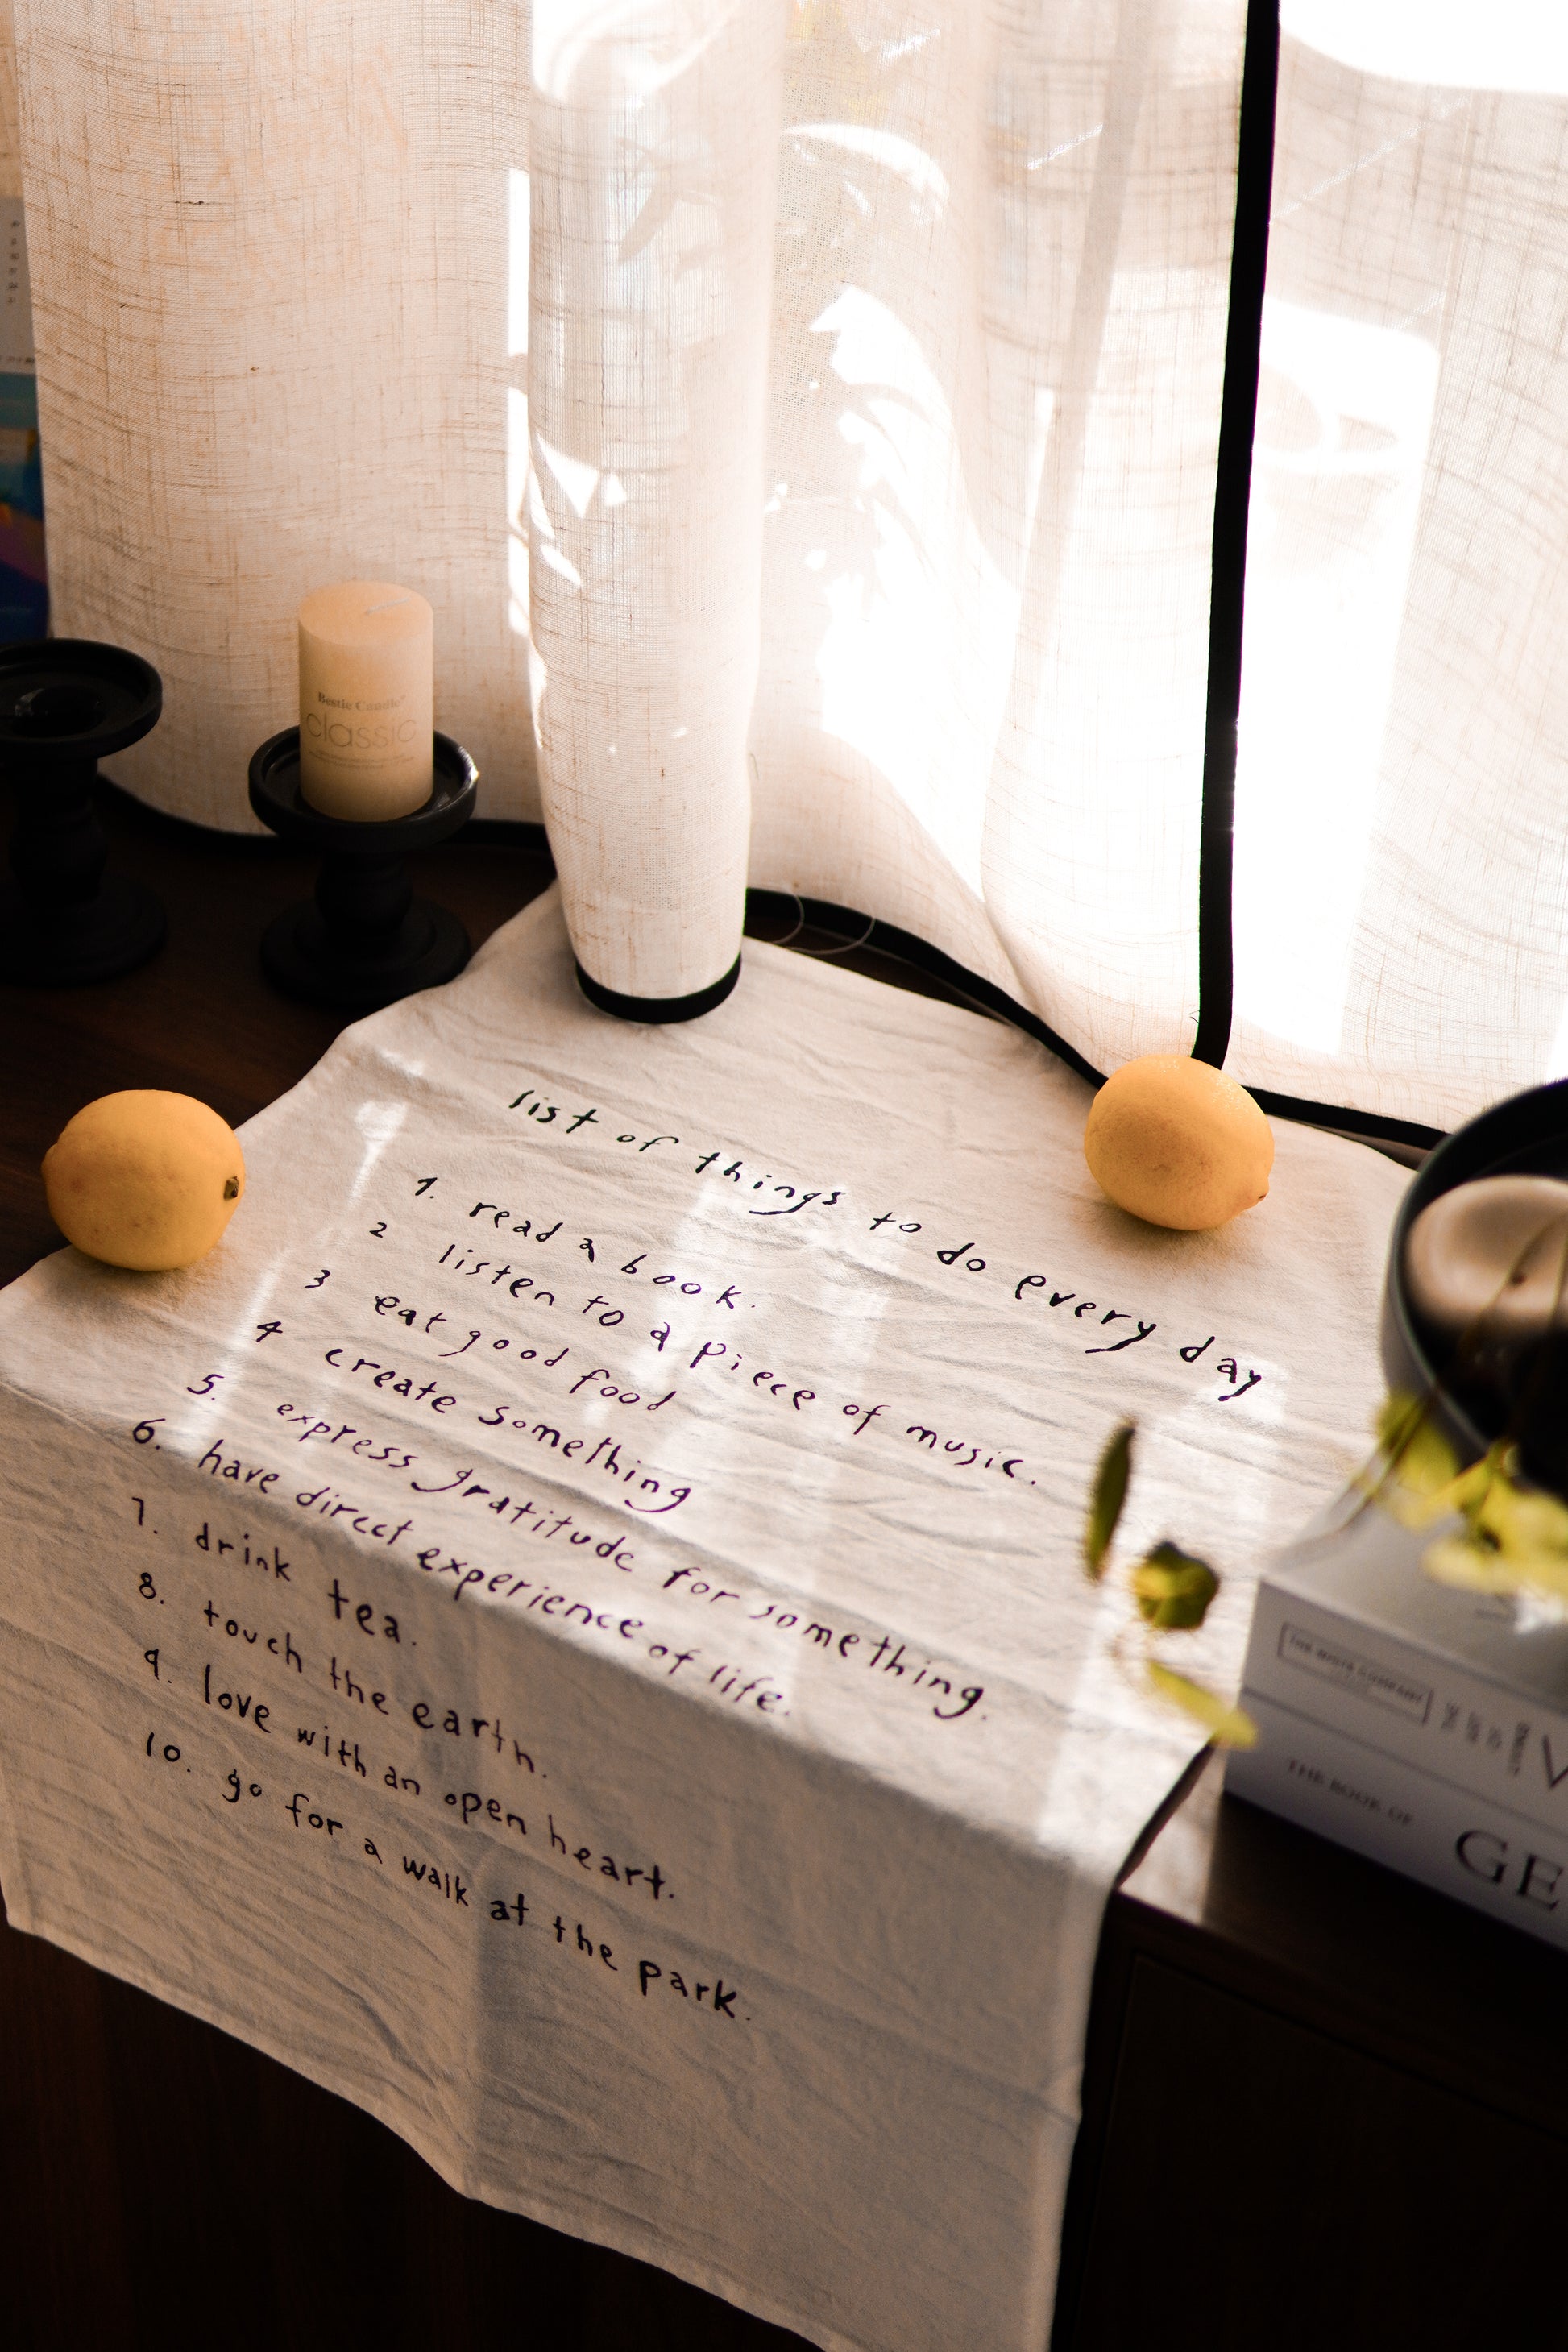 Bestie Candle
classic
list of things to do every day
1. read a book.
2 listen to a piece of music.
3 eat good food
4 create something
5. express gratitude for something.
6. have direct experience of life.
7. drink tea.
8. touch the earth.
9. love with an open heart.
10. go for a walk at the park.
THE WHITE COMPANY
THE BOOK OF
GE